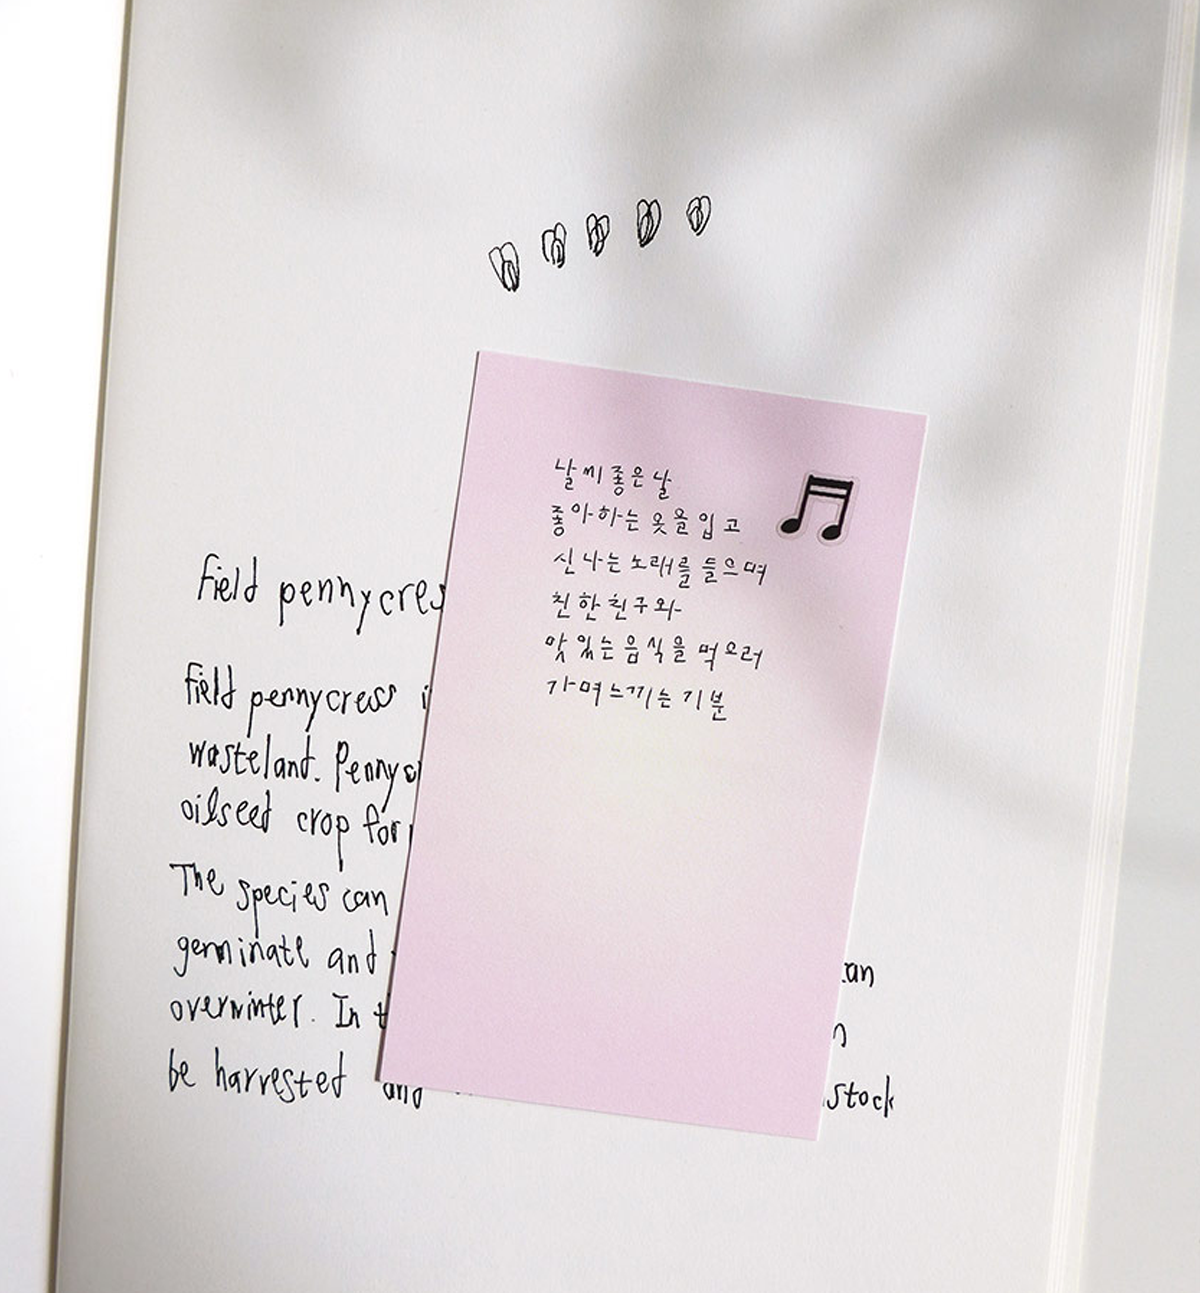 날씨 좋은 날
좋아하는 옷을 입고
신나는 노래를 들으며
친한 친구와
맛있는 음식을 먹으러
가며 느끼는 기분
Field pennycres
Field pennycress i
wasteland. Pennyc
oilseed crop for
The species can
germinate and
can
overwinter. In t
n
be harvested and
stock